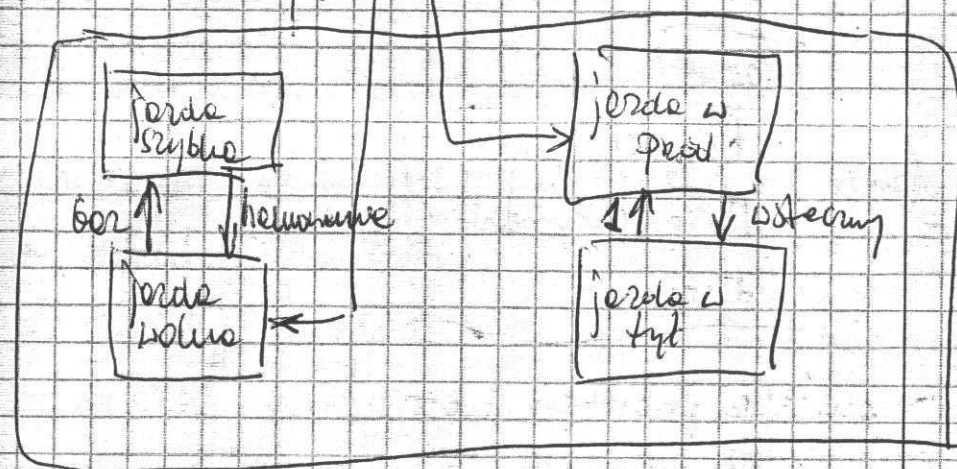 jazda
szybka
gaz
hamowanie
jazda
wolna
jazda w
przód
1
wsteczny
jazda w
tył